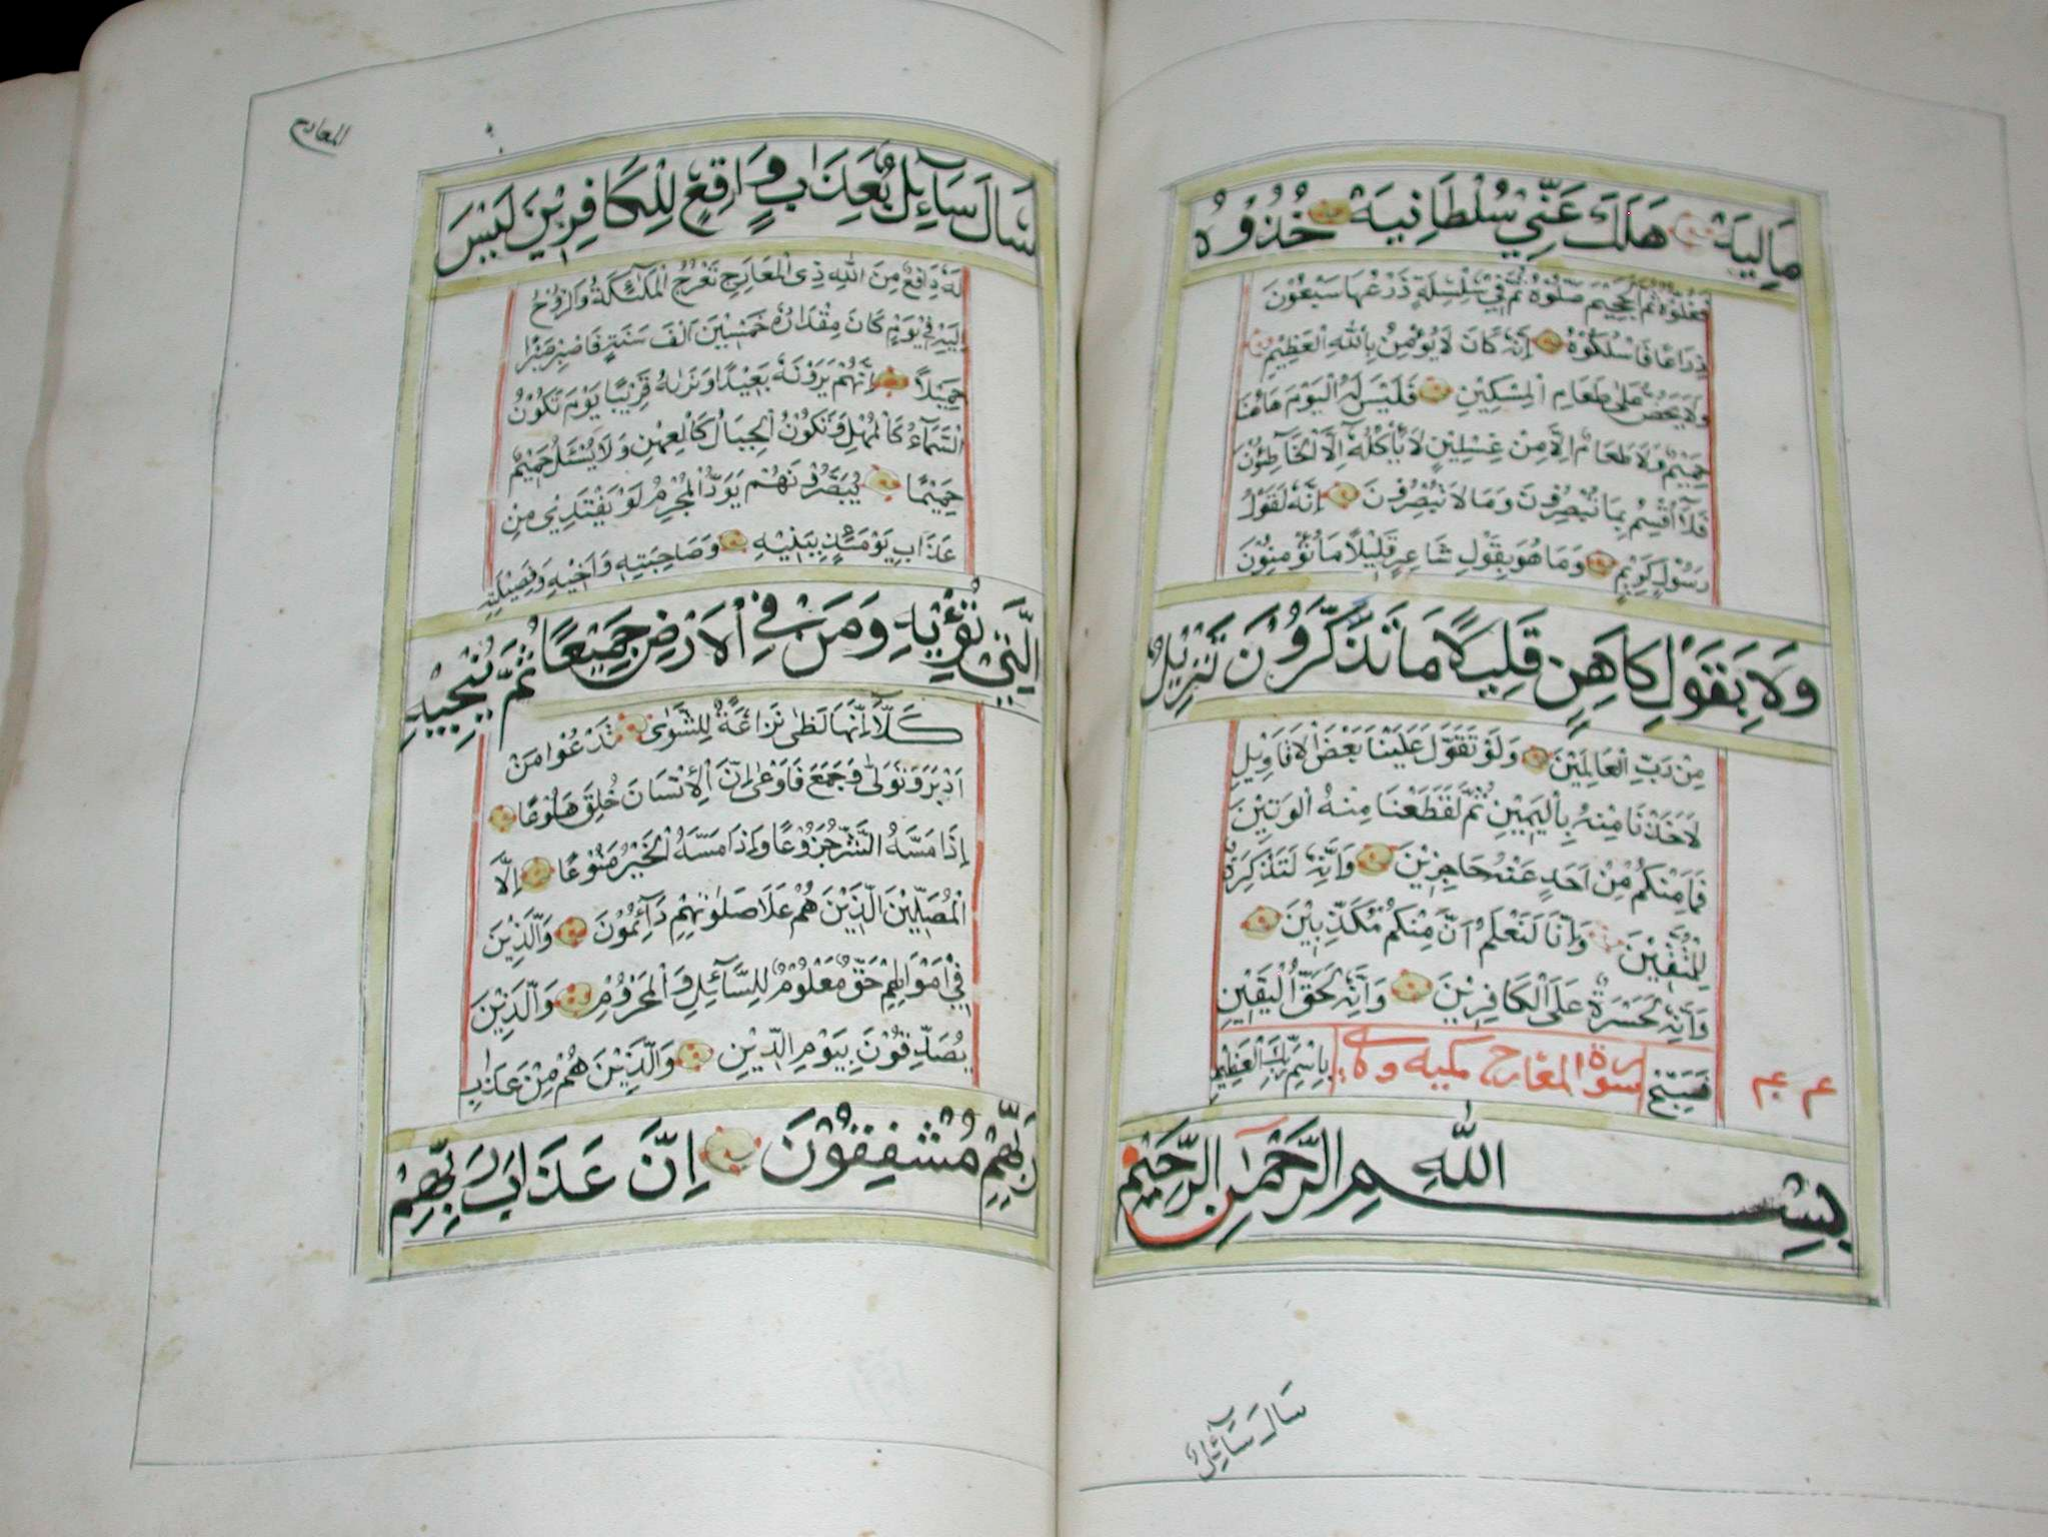 مَالِيَهْ هَلَكَ عَنِّي سُلْطَانِيَهْ خُذُوْهُ
فَغُلُّوْهُ ثُمَّ الْجَحِيْمَ صَلُّوْهُ ثُمَّ فِيْ سِلْسِلَةٍ ذَرْعُهَا سَبْعُوْنَ
ذِرَاعًا فَاسْلُكُوْهُ اِنَّهٗ كَانَ لَا يُؤْمِنُ بِاللّٰهِ الْعَظِيْمِ
وَلَا يَحُضُّ عَلٰى طَعَامِ الْمِسْكِيْنِ فَلَيْسَ لَهُ الْيَوْمَ هَاهُنَا
حَمِيْمٌ وَلَا طَعَامٌ اِلَّا مِنْ غِسْلِيْنٍ لَا يَأْكُلُهٗٓ اِلَّا الْخَاطِئُوْنَ
فَلَآ اُقْسِمُ بِمَا تُبْصِرُوْنَ وَمَا لَا تُبْصِرُوْنَ اِنَّهٗ لَقَوْلُ
رَسُوْلٍ كَرِيْمٍ وَمَا هُوَ بِقَوْلِ شَاعِرٍ قَلِيْلًا مَا تُؤْمِنُوْنَ
وَلَا بِقَوْلِ كَاهِنٍ قَلِيْلًا مَا تَذَكَّرُوْنَ تَنْزِيْلٌ
مِنْ رَبِّ الْعَالَمِيْنَ وَلَوْ تَقَوَّلَ عَلَيْنَا بَعْضَ الْاَقَاوِيْلِ
لَاَخَذْنَا مِنْهُ بِالْيَمِيْنِ ثُمَّ لَقَطَعْنَا مِنْهُ الْوَتِيْنَ
فَمَا مِنْكُمْ مِنْ اَحَدٍ عَنْهُ حَاجِزِيْنَ وَاِنَّهٗ لَتَذْكِرَةٌ
لِلْمُتَّقِيْنَ وَاِنَّا لَنَعْلَمُ اَنَّ مِنْكُمْ مُكَذِّبِيْنَ
وَاِنَّهٗ لَحَسْرَةٌ عَلَى الْكَافِرِيْنَ وَاِنَّهٗ لَحَقُّ الْيَقِيْنِ
فَسَبِّحْ سورة المعارج مكيه وهي بِاسْمِ رَبِّكَ الْعَظِيْمِ
بِسْمِ اللّٰهِ الرَّحْمٰنِ الرَّحِيْمِ
سَاَلَ سَآئِلٌ
المعارج
سَاَلَ سَآئِلٌ بِعَذَابٍ وَاقِعٍ لِلْكَافِرِيْنَ لَيْسَ
لَهٗ دَافِعٌ مِنَ اللّٰهِ ذِي الْمَعَارِجِ تَعْرُجُ الْمَلٰٓئِكَةُ وَالرُّوْحُ
اِلَيْهِ فِيْ يَوْمٍ كَانَ مِقْدَارُهٗ خَمْسِيْنَ اَلْفَ سَنَةٍ فَاصْبِرْ صَبْرًا
جَمِيْلًا اِنَّهُمْ يَرَوْنَهٗ بَعِيْدًا وَنَرٰىهُ قَرِيْبًا يَوْمَ تَكُوْنُ
السَّمَآءُ كَالْمُهْلِ وَتَكُوْنُ الْجِبَالُ كَالْعِهْنِ وَلَا يُسْئَلُ حَمِيْمٌ
حَمِيْمًا يُبَصَّرُوْنَهُمْ يَوَدُّ الْمُجْرِمُ لَوْ يَفْتَدِيْ مِنْ
عَذَابِ يَوْمَئِذٍ بِبَنِيْهِ وَصَاحِبَتِهٖ وَاَخِيْهِ وَفَصِيْلَتِهِ
الَّتِيْ تُؤْيِهِ وَمَنْ فِي الْاَرْضِ جَمِيْعًا ثُمَّ يُنْجِيْهِ
كَلَّآ اِنَّهَا لَظٰى نَزَّاعَةً لِلشَّوٰى تَدْعُوْا مَنْ
اَدْبَرَ وَتَوَلّٰى وَجَمَعَ فَاَوْعٰى اِنَّ الْاِنْسَانَ خُلِقَ هَلُوْعًا
اِذَا مَسَّهُ الشَّرُّ جَزُوْعًا وَاِذَا مَسَّهُ الْخَيْرُ مَنُوْعًا اِلَّا
الْمُصَلِّيْنَ الَّذِيْنَ هُمْ عَلٰا صَلٰوتِهِمْ دَآئِمُوْنَ وَالَّذِيْنَ
فِيْ اَمْوَالِهِمْ حَقٌّ مَعْلُوْمٌ لِلسَّآئِلِ وَالْمَحْرُوْمِ وَالَّذِيْنَ
يُصَدِّقُوْنَ بِيَوْمِ الدِّيْنِ وَالَّذِيْنَ هُمْ مِنْ عَذَابِ
رَبِّهِمْ مُشْفِقُوْنَ اِنَّ عَذَابَ رَبِّهِمْ